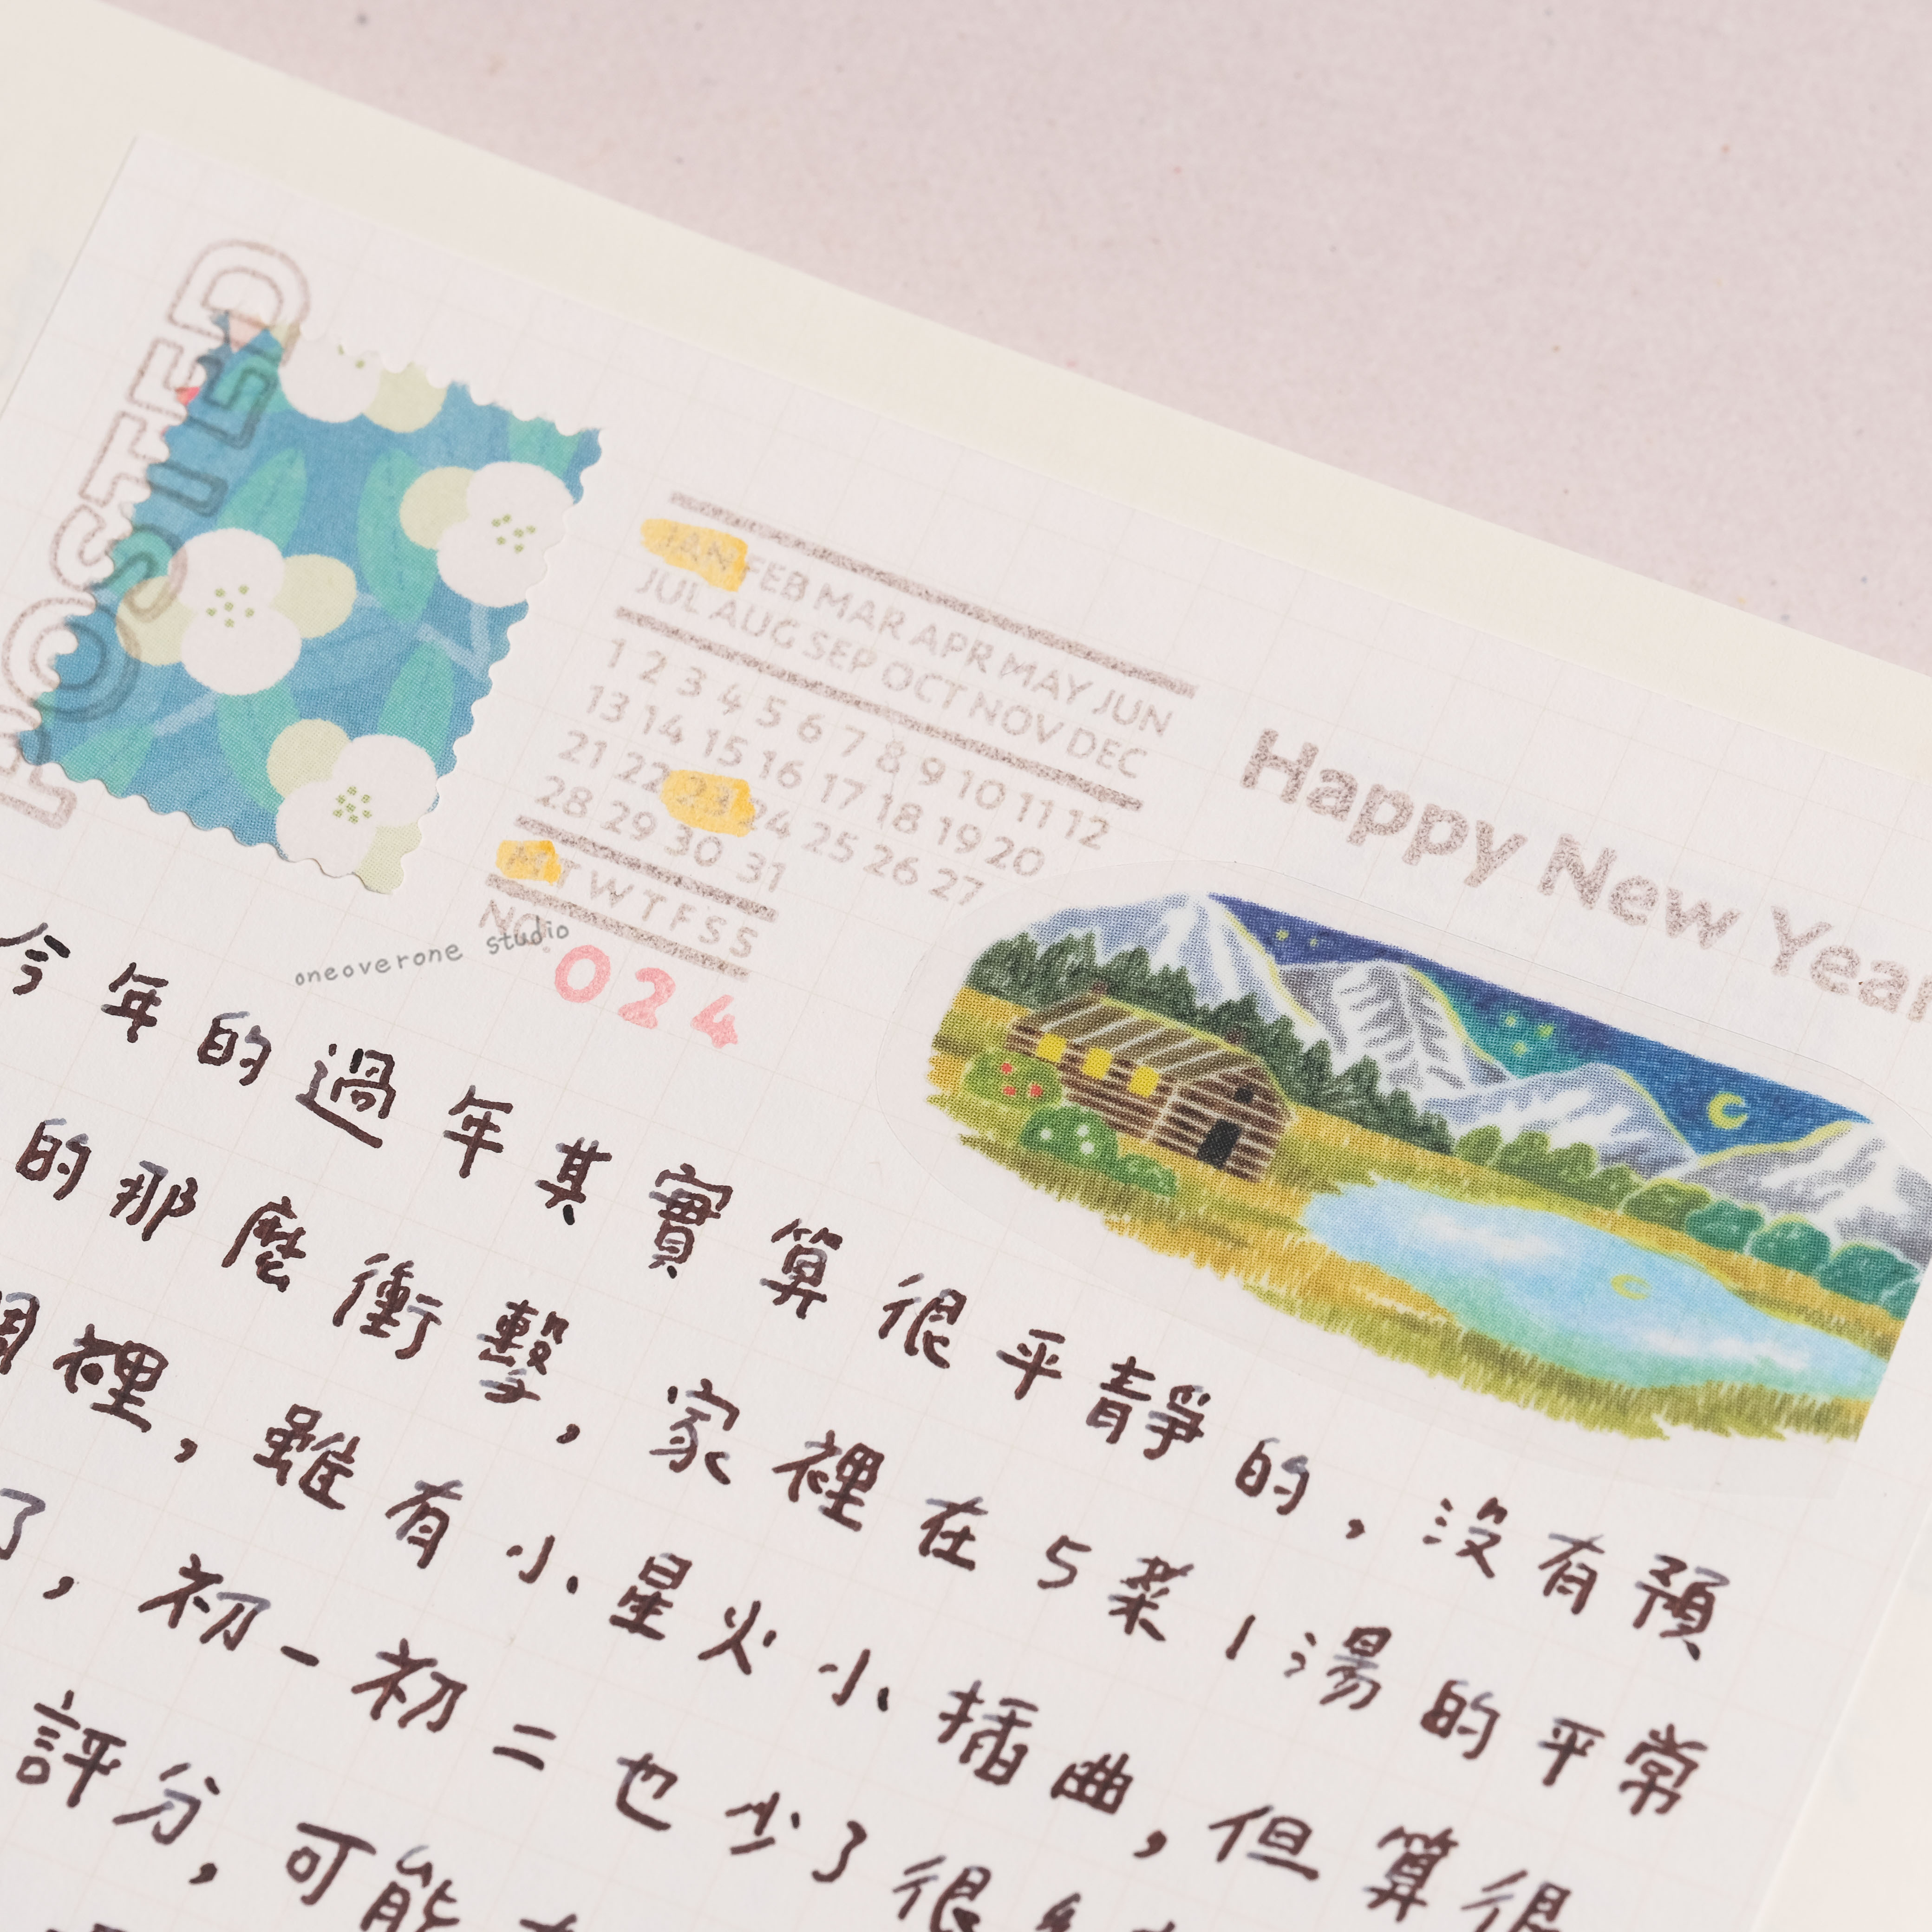 POSTED
JAN FEB MAR APR MAY JUN
JUL AUG SEP OCT NOV DEC
1 2 3 4 5 6 7 8 9 10 11 12
13 14 15 16 17 18 19 20
21 22 23 24 25 26 27
28 29 30 31
M T W T F S S
NO.
024
Happy New Year
oneoverone studio
今年的過年其實算很平靜的，沒有預
的那麼衝擊，家裡在5菜1湯的平常
裡，雖有小星火小插曲，但算很
了，初一初二也少了很
評分，可能